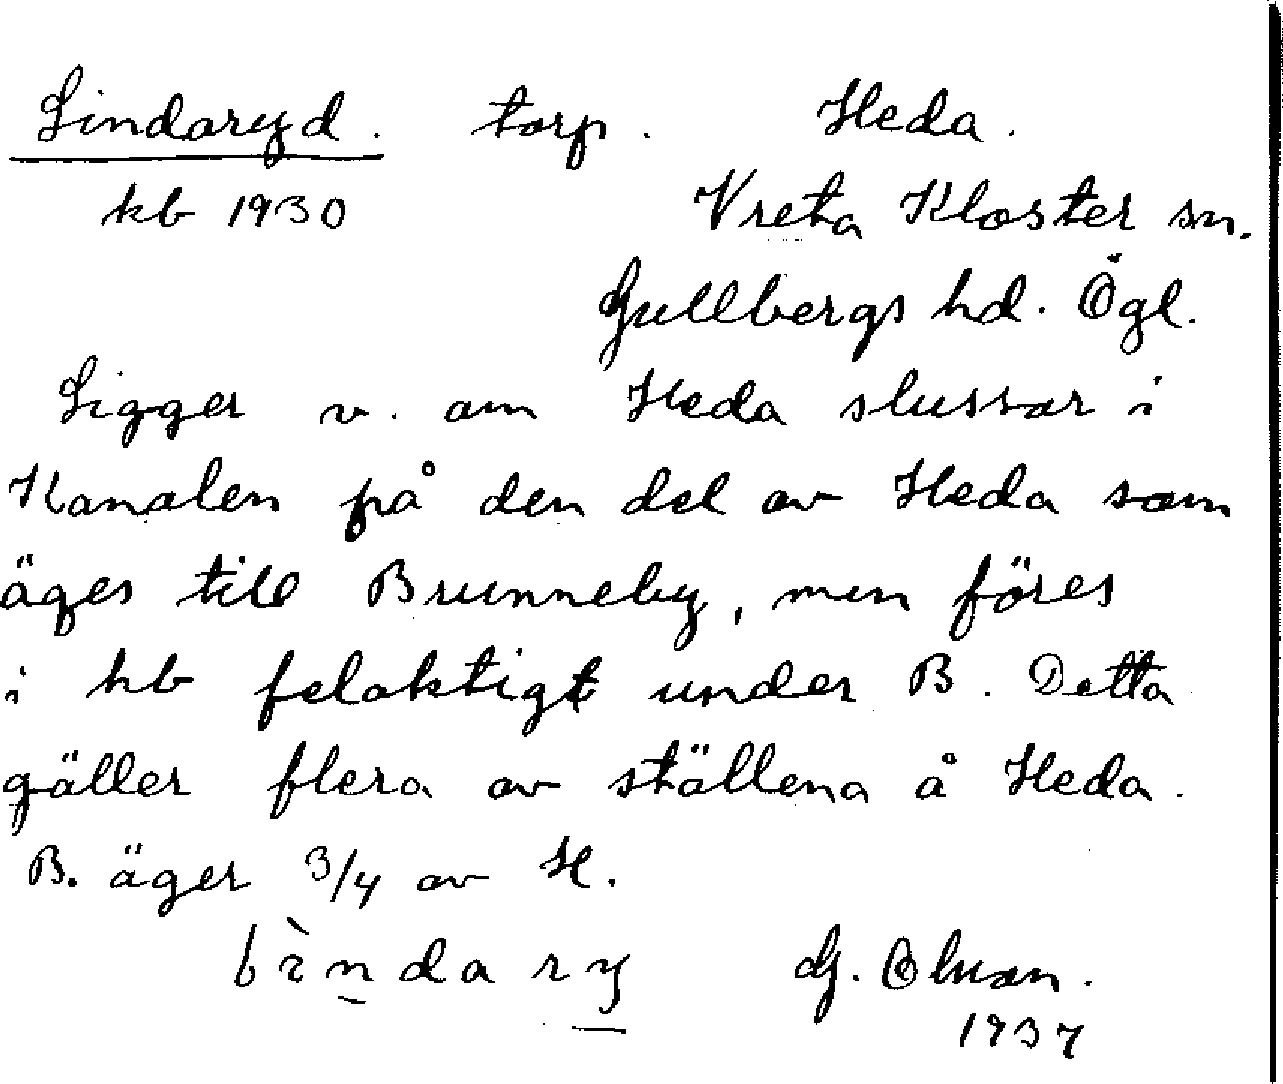 Lindaryd. torp. Heda.
kb 1930 Vreta Kloster sn.
Gullbergs hd. Ögl.
Ligger v. om Heda slussar i
Kanalen på den del av Heda som
äges till Brunneby, men föres
i kb felaktigt under B. Detta
gäller flera av ställena å Heda.
B. äger 3/4 av H.
G. Olson.
1937